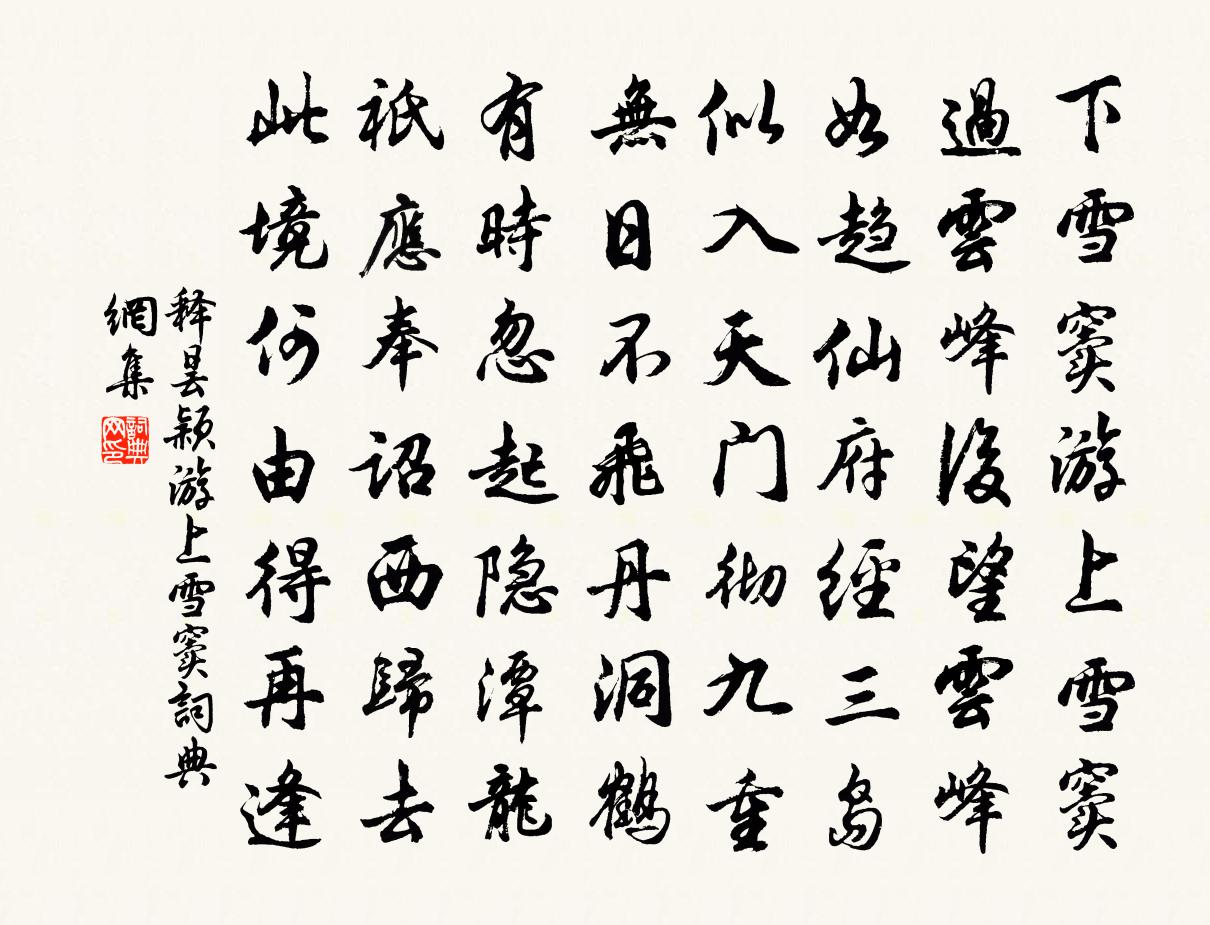 下雪窦游上雪窦
過雲峰後望雲峰
如趋仙府經三島
似入天门彻九重
無日不飛丹洞鶴
有時忽起隐潭龍
祇應奉诏西歸去
此境何由得再逢
释昙颖游上雪窦詞典
網集
詞典网印